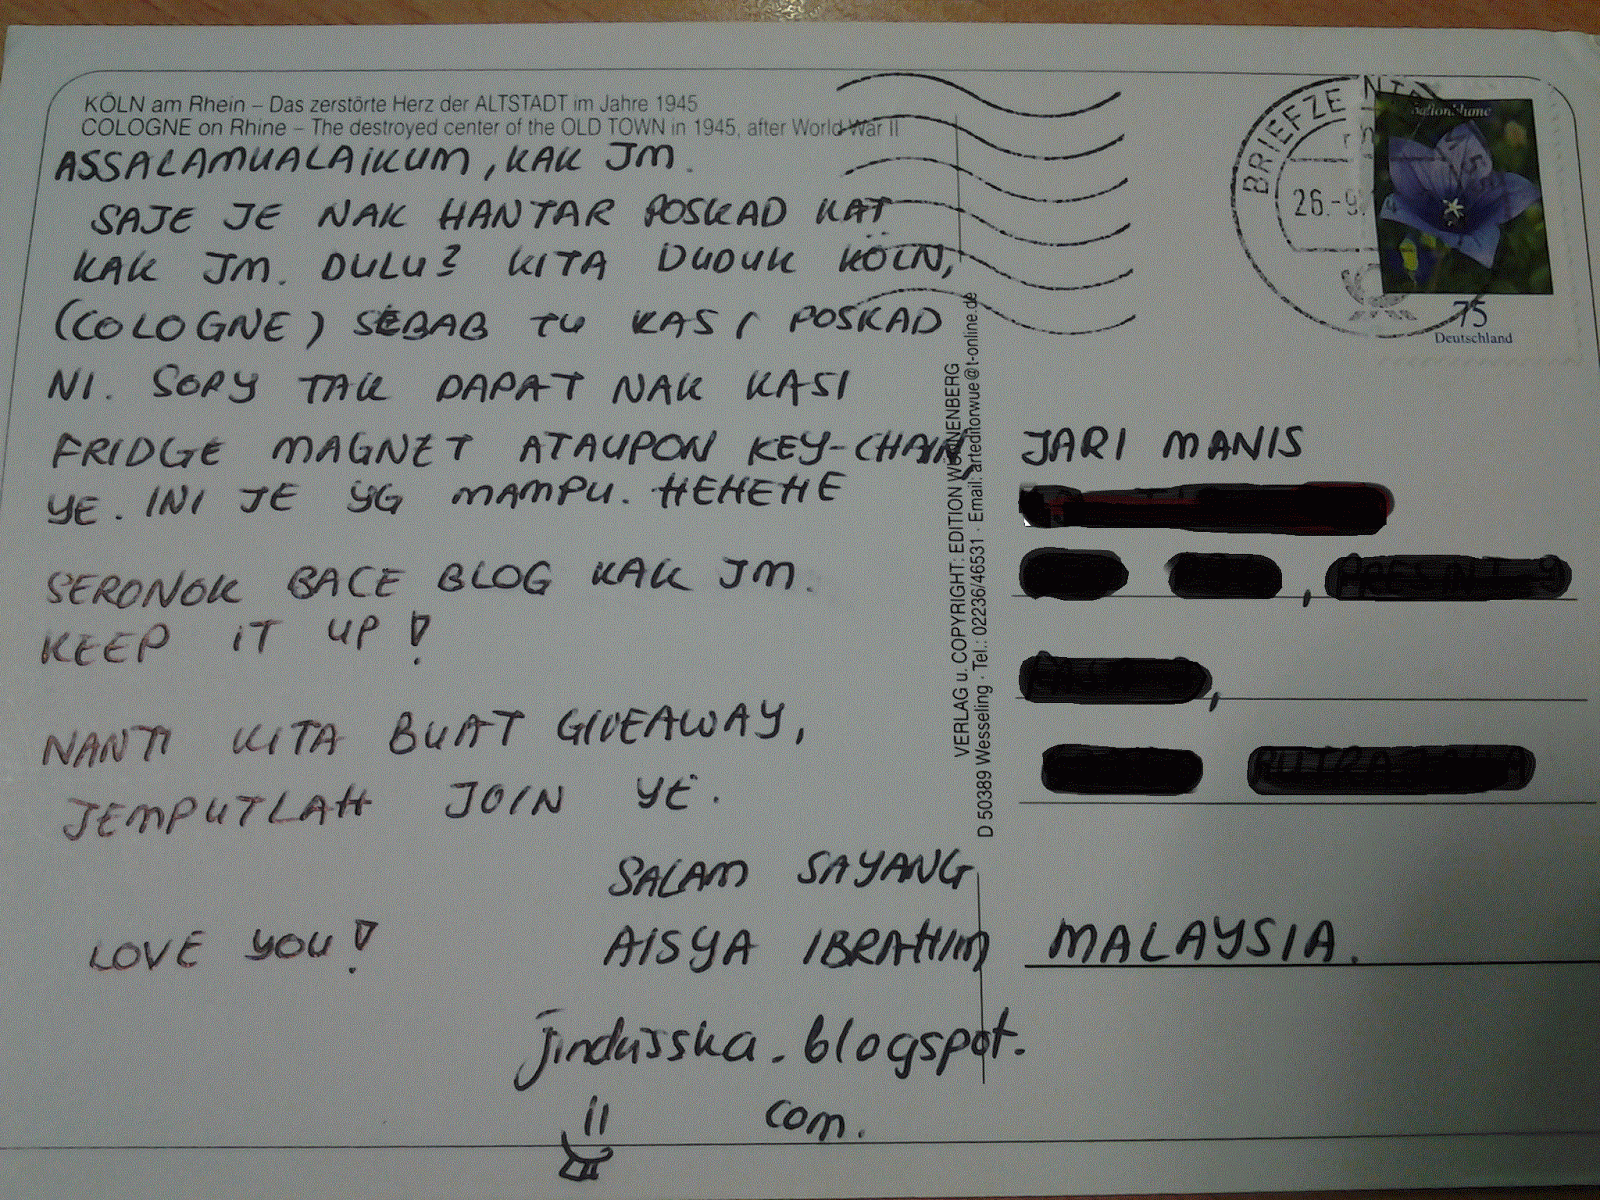 KÖLN am Rhein – Das zerstörte Herz der ALTSTADT im Jahre 1945
COLOGNE on Rhine – The destroyed center of the OLD TOWN in 1945, after World War II
ASSALAMUALAIKUM, KAK JM.
SAJE JE NAK HANTAR POSKAD KAT
KAK JM. DULU2 KITA DUDUK KÖLN,
(COLOGNE) SEBAB TU KASI POSKAD
NI. SORY TAK DAPAT NAK KASI
FRIDGE MAGNET ATAUPON KEY-CHAIN
YE. INI JE YG MAMPU. HEHEHE
SERONOK BACE BLOG KAK JM.
KEEP IT UP!
NANTI KITA BUAT GIVEAWAY,
JEMPUTLAH JOIN YE.
SALAM SAYANG
LOVE YOU! AISYA IBRAHIM
jindusska.blogspot.
com.
VERLAG u. COPYRIGHT: EDITION WÜNNENBERG
D 50389 Wesseling · Tel.: 02236/46531 · Email: arteditorwue@t-online.de
BRIEFZE
26.-9.
75
Deutschland
JARI MANIS
MALAYSIA.